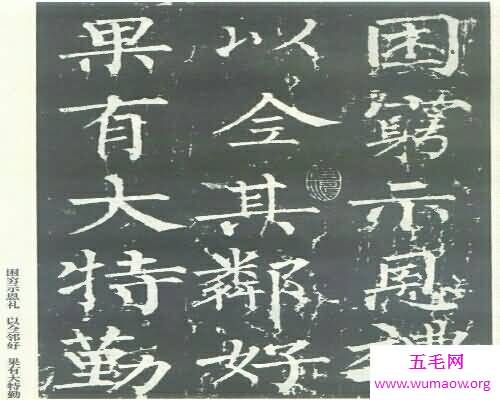 困窮示恩禮
以全其鄰好
果有大特勤
困穷示恩礼 以全邻好 果有大特勤
五毛网
www.wumaow.org